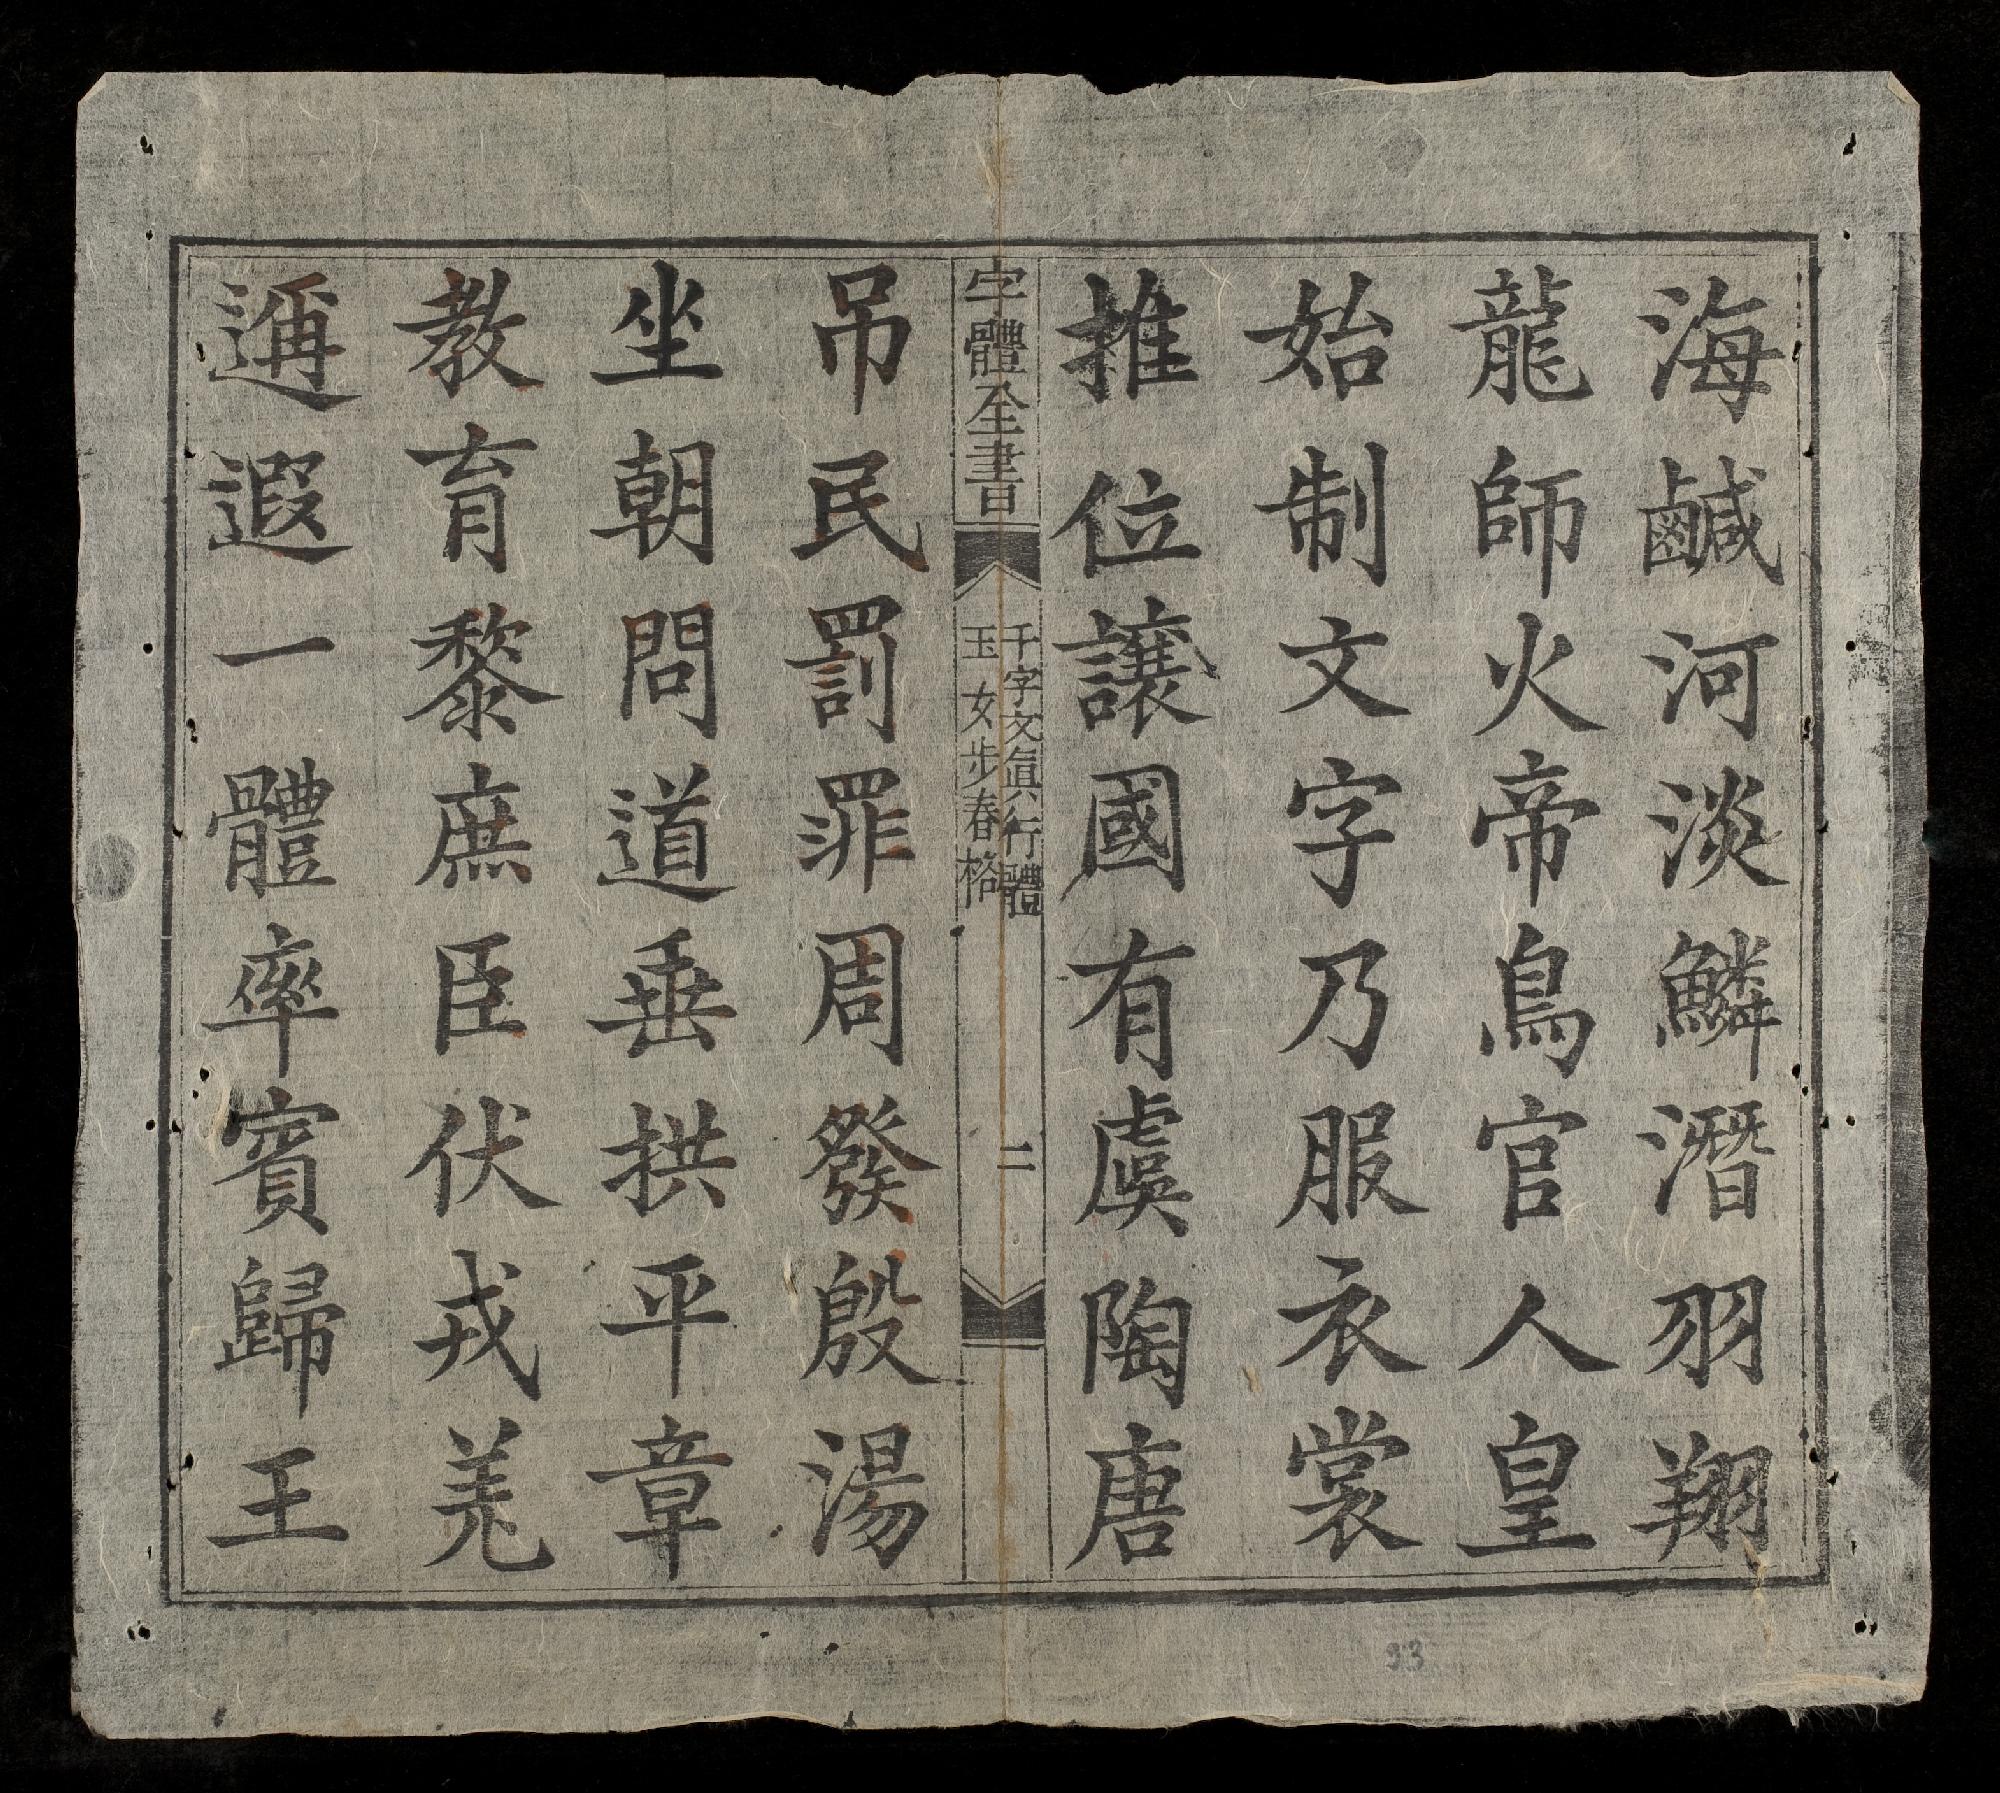 海鹹河淡鱗潛羽翔
龍師火帝鳥官人皇
始制文字乃服衣裳
推位讓國有虞陶唐
字體全書
千字文眞行體
玉女步春格
二
吊民罰罪周發殷湯
坐朝問道垂拱平章
教育黎庶臣伏戎羌
邇遐一體率賓歸王
93